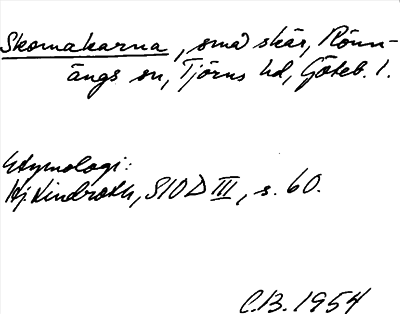 Skomakarna, små skär, Rönn-
ängs sn, Tjörns hd, Göteb. l.
Etymologi:
Hj. Lindroth, SIOD III, s. 60.
C.B. 1954